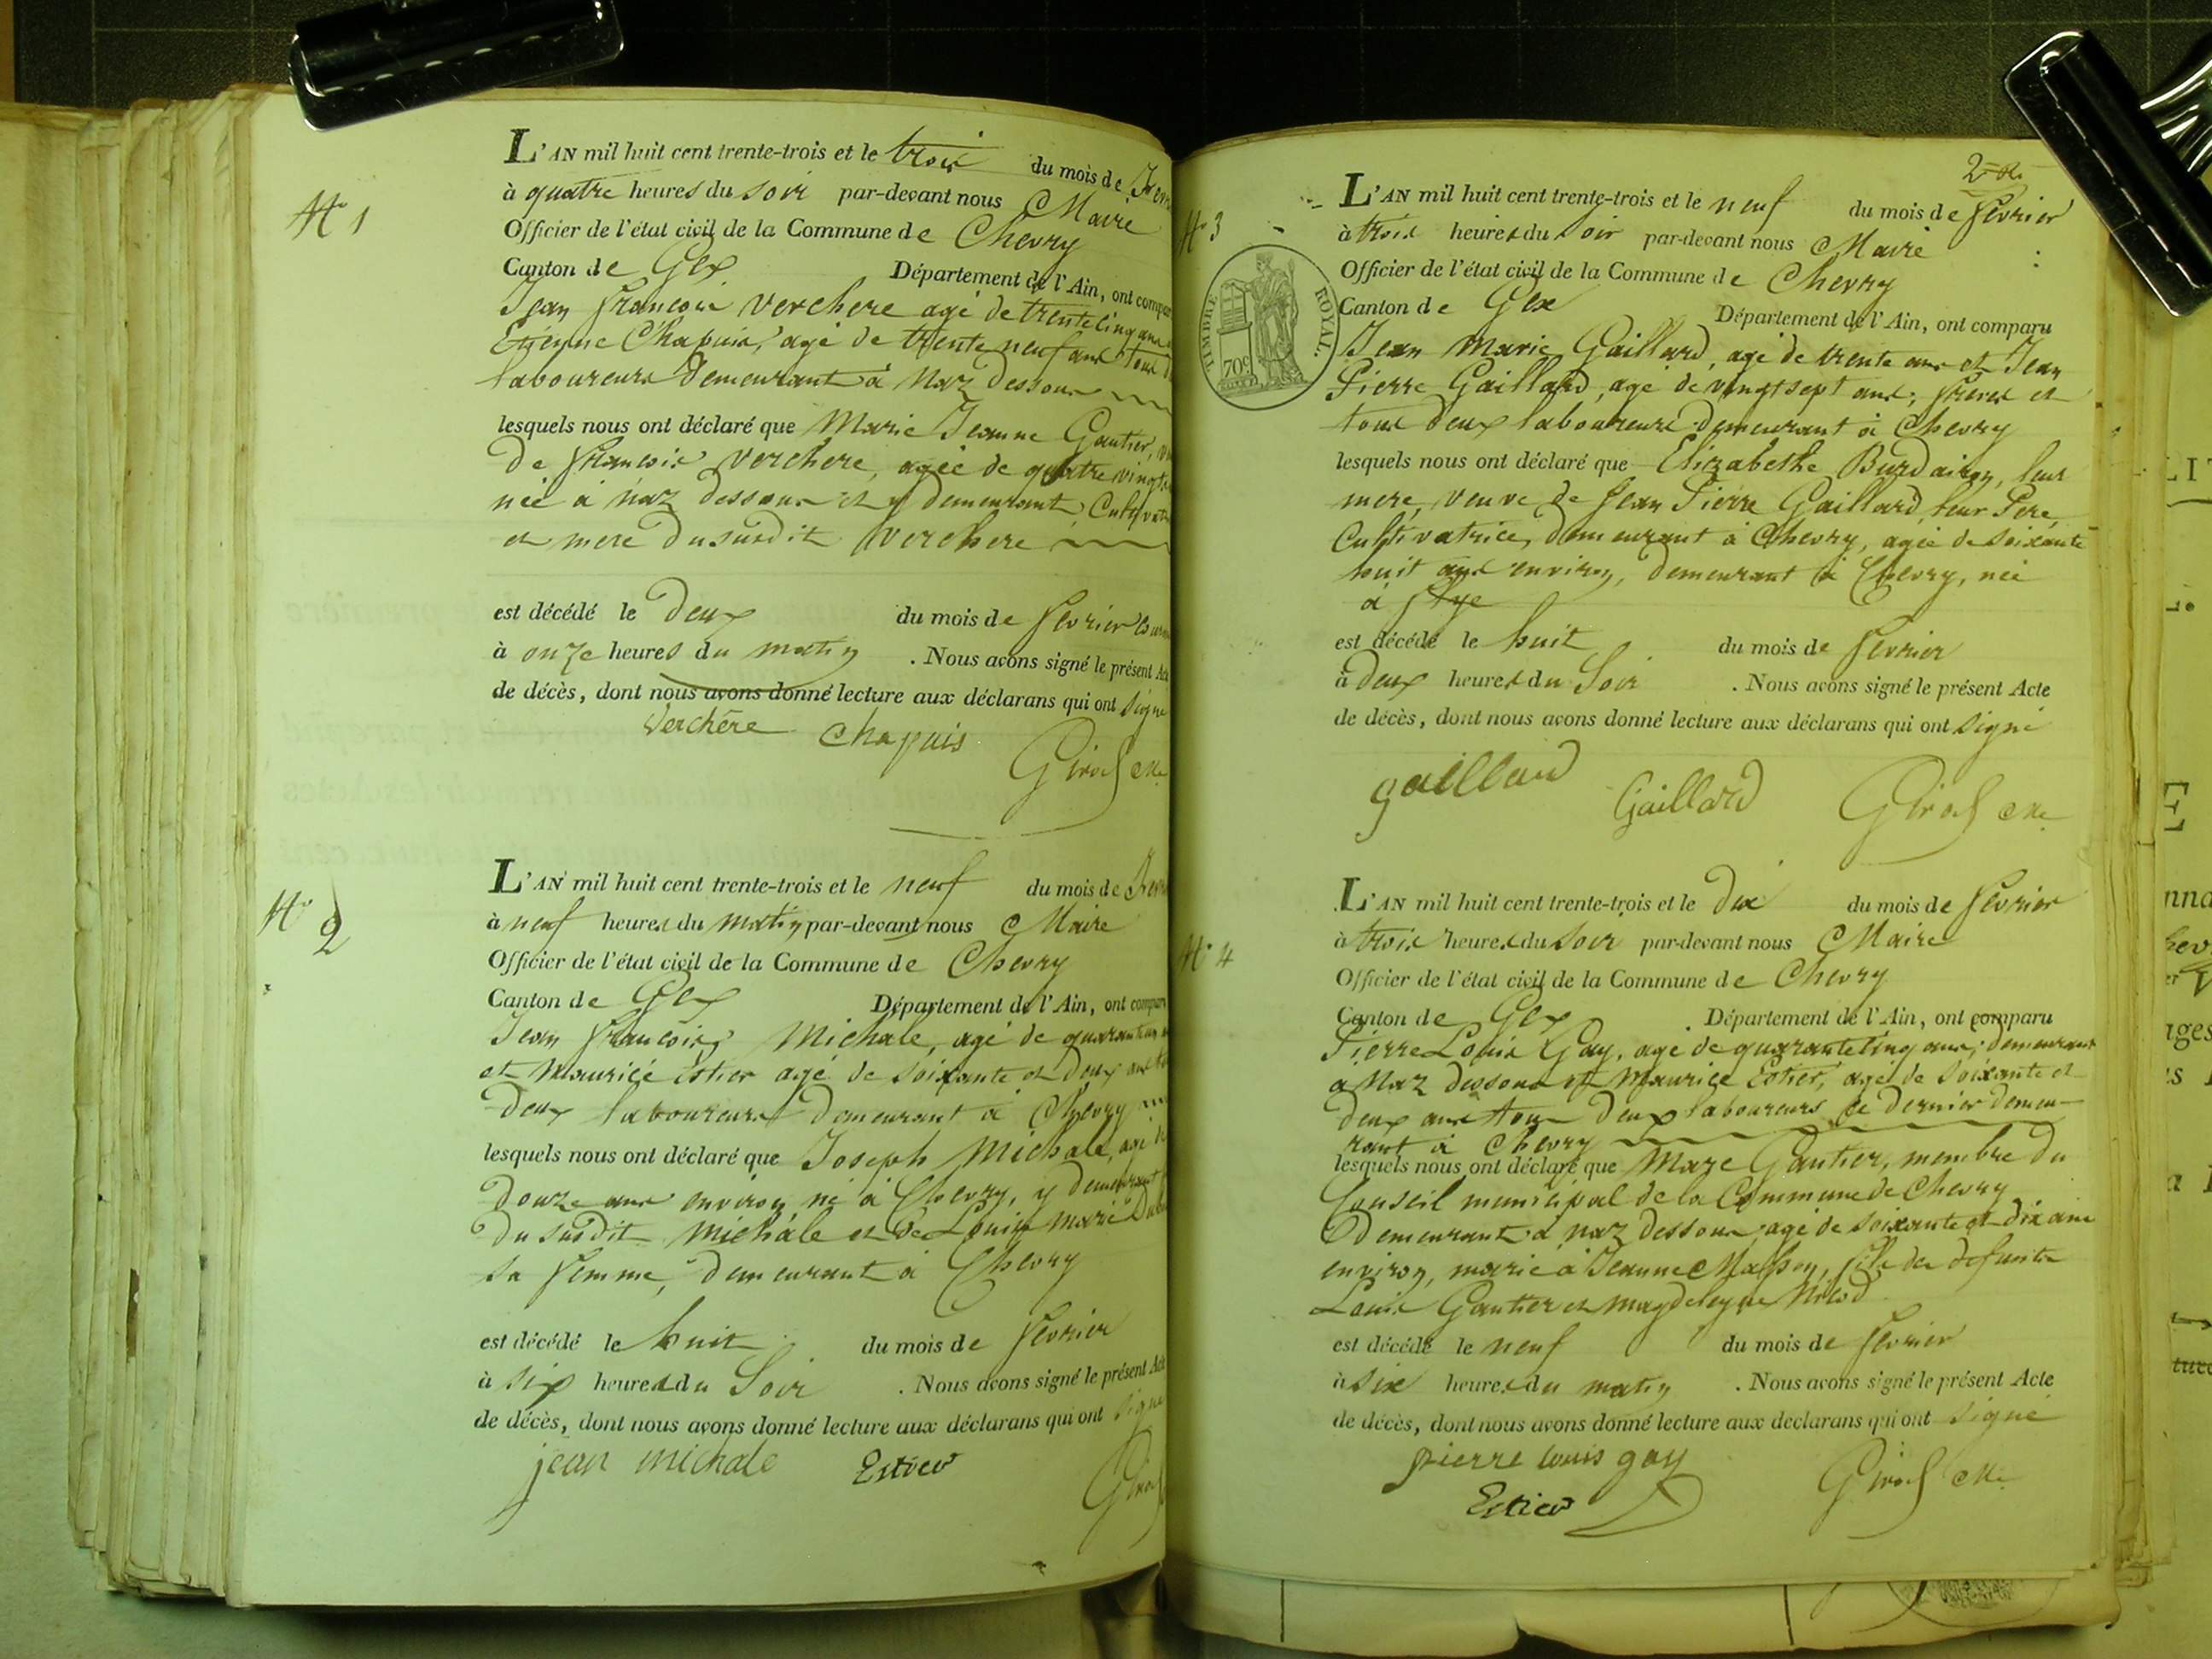 N° 1
L'AN mil huit cent trente-trois et le trois du mois de
à quatre heures du soir par-devant nous Maire
Officier de l'état civil de la Commune de Chevry
Canton de Gex Département de l'Ain, ont compar
Jean françois Verchere agé de trente cinq ans
Etienne Chapuis, agé de trente neuf ans tous
laboureurs demeurant à Naz dessous
lesquels nous ont déclaré que Marie Jeanne Gautier,
de françois Verchere, agée de quatre vingt
née à naz dessous et y demeurant, Cultivat
et mere du susdit Verchere
est décédé le deux du mois de fevrier
à onze heures du matin . Nous avons signé le présent Acte
de décès, dont nous avons donné lecture aux déclarans qui ont signé
Verchère chapuis
Girod Me
N° 2
L'AN mil huit cent trente-trois et le neuf du mois de
à neuf heures du matin par-devant nous Maire
Officier de l'état civil de la Commune de Chevry
Canton de Gex Département de l'Ain, ont compar
Jean françois Michale, agé de quarante
et Maurice Estier agé de soixante et deux ans
deux laboureurs demeurant à Chevry
lesquels nous ont déclaré que Joseph Michale, agé de
douze ans environ né à Chevry, y demeurant
du susdit Michale et de Louise Marie
sa femme, demeurant à Chevry
est décédé le huit du mois de fevrier
à six heures du Soir . Nous avons signé le présent Acte
de décès, dont nous avons donné lecture aux déclarans qui ont signé
jean michale Estier
Girod
N° 3
TIMBRE ROYAL.
70c
L'AN mil huit cent trente-trois et le neuf du mois de fevrier
à trois heures du soir par-devant nous Maire
Officier de l'état civil de la Commune de Chevry
Canton de Gex Département de l'Ain, ont comparu
Jean Marie Gaillard, agé de trente ans et Jean
Pierre Gaillard, agé de vingt sept ans, freres et
tous deux laboureurs demeurant à Chevry
lesquels nous ont déclaré que Elizabethe Burdairon, leur
mere, veuve de Jean Pierre Gaillard, leur Pere,
Cultivatrice, demeurant à Chevry, agée de soixante
huit ans environ, demeurant à Chevry, née
à
est décédé le huit du mois de fevrier
à deux heures du Soir . Nous avons signé le présent Acte
de décès, dont nous avons donné lecture aux déclarans qui ont signé
gaillard Gaillard Girod Me
N° 4
L'AN mil huit cent trente-trois et le dix du mois de fevrier
à trois heures du soir par-devant nous Maire
Officier de l'état civil de la Commune de Chevry
Canton de Gex Département de l'Ain, ont comparu
Pierre Louis Gay, agé de quarante cinq ans, demeurant
a Naz dessous et Maurice Estier, agé de soixante et
deux ans tous deux laboureurs ce dernier demeu-
rant à Chevry
lesquels nous ont déclaré que Marc Gautier, membre du
Conseil municipal de la Commune de Chevry
demeurant à naz dessous, agé de soixante et dix ans
environ, marié à Jeanne Masson, fils de defunts
Louis Gautier et Magdeleyne Nicod
est décédé le neuf du mois de fevrier
à six heures du matin . Nous avons signé le présent Acte
de décès, dont nous avons donné lecture aux déclarans qui ont signé
pierre louis gay Girod Me
Estier